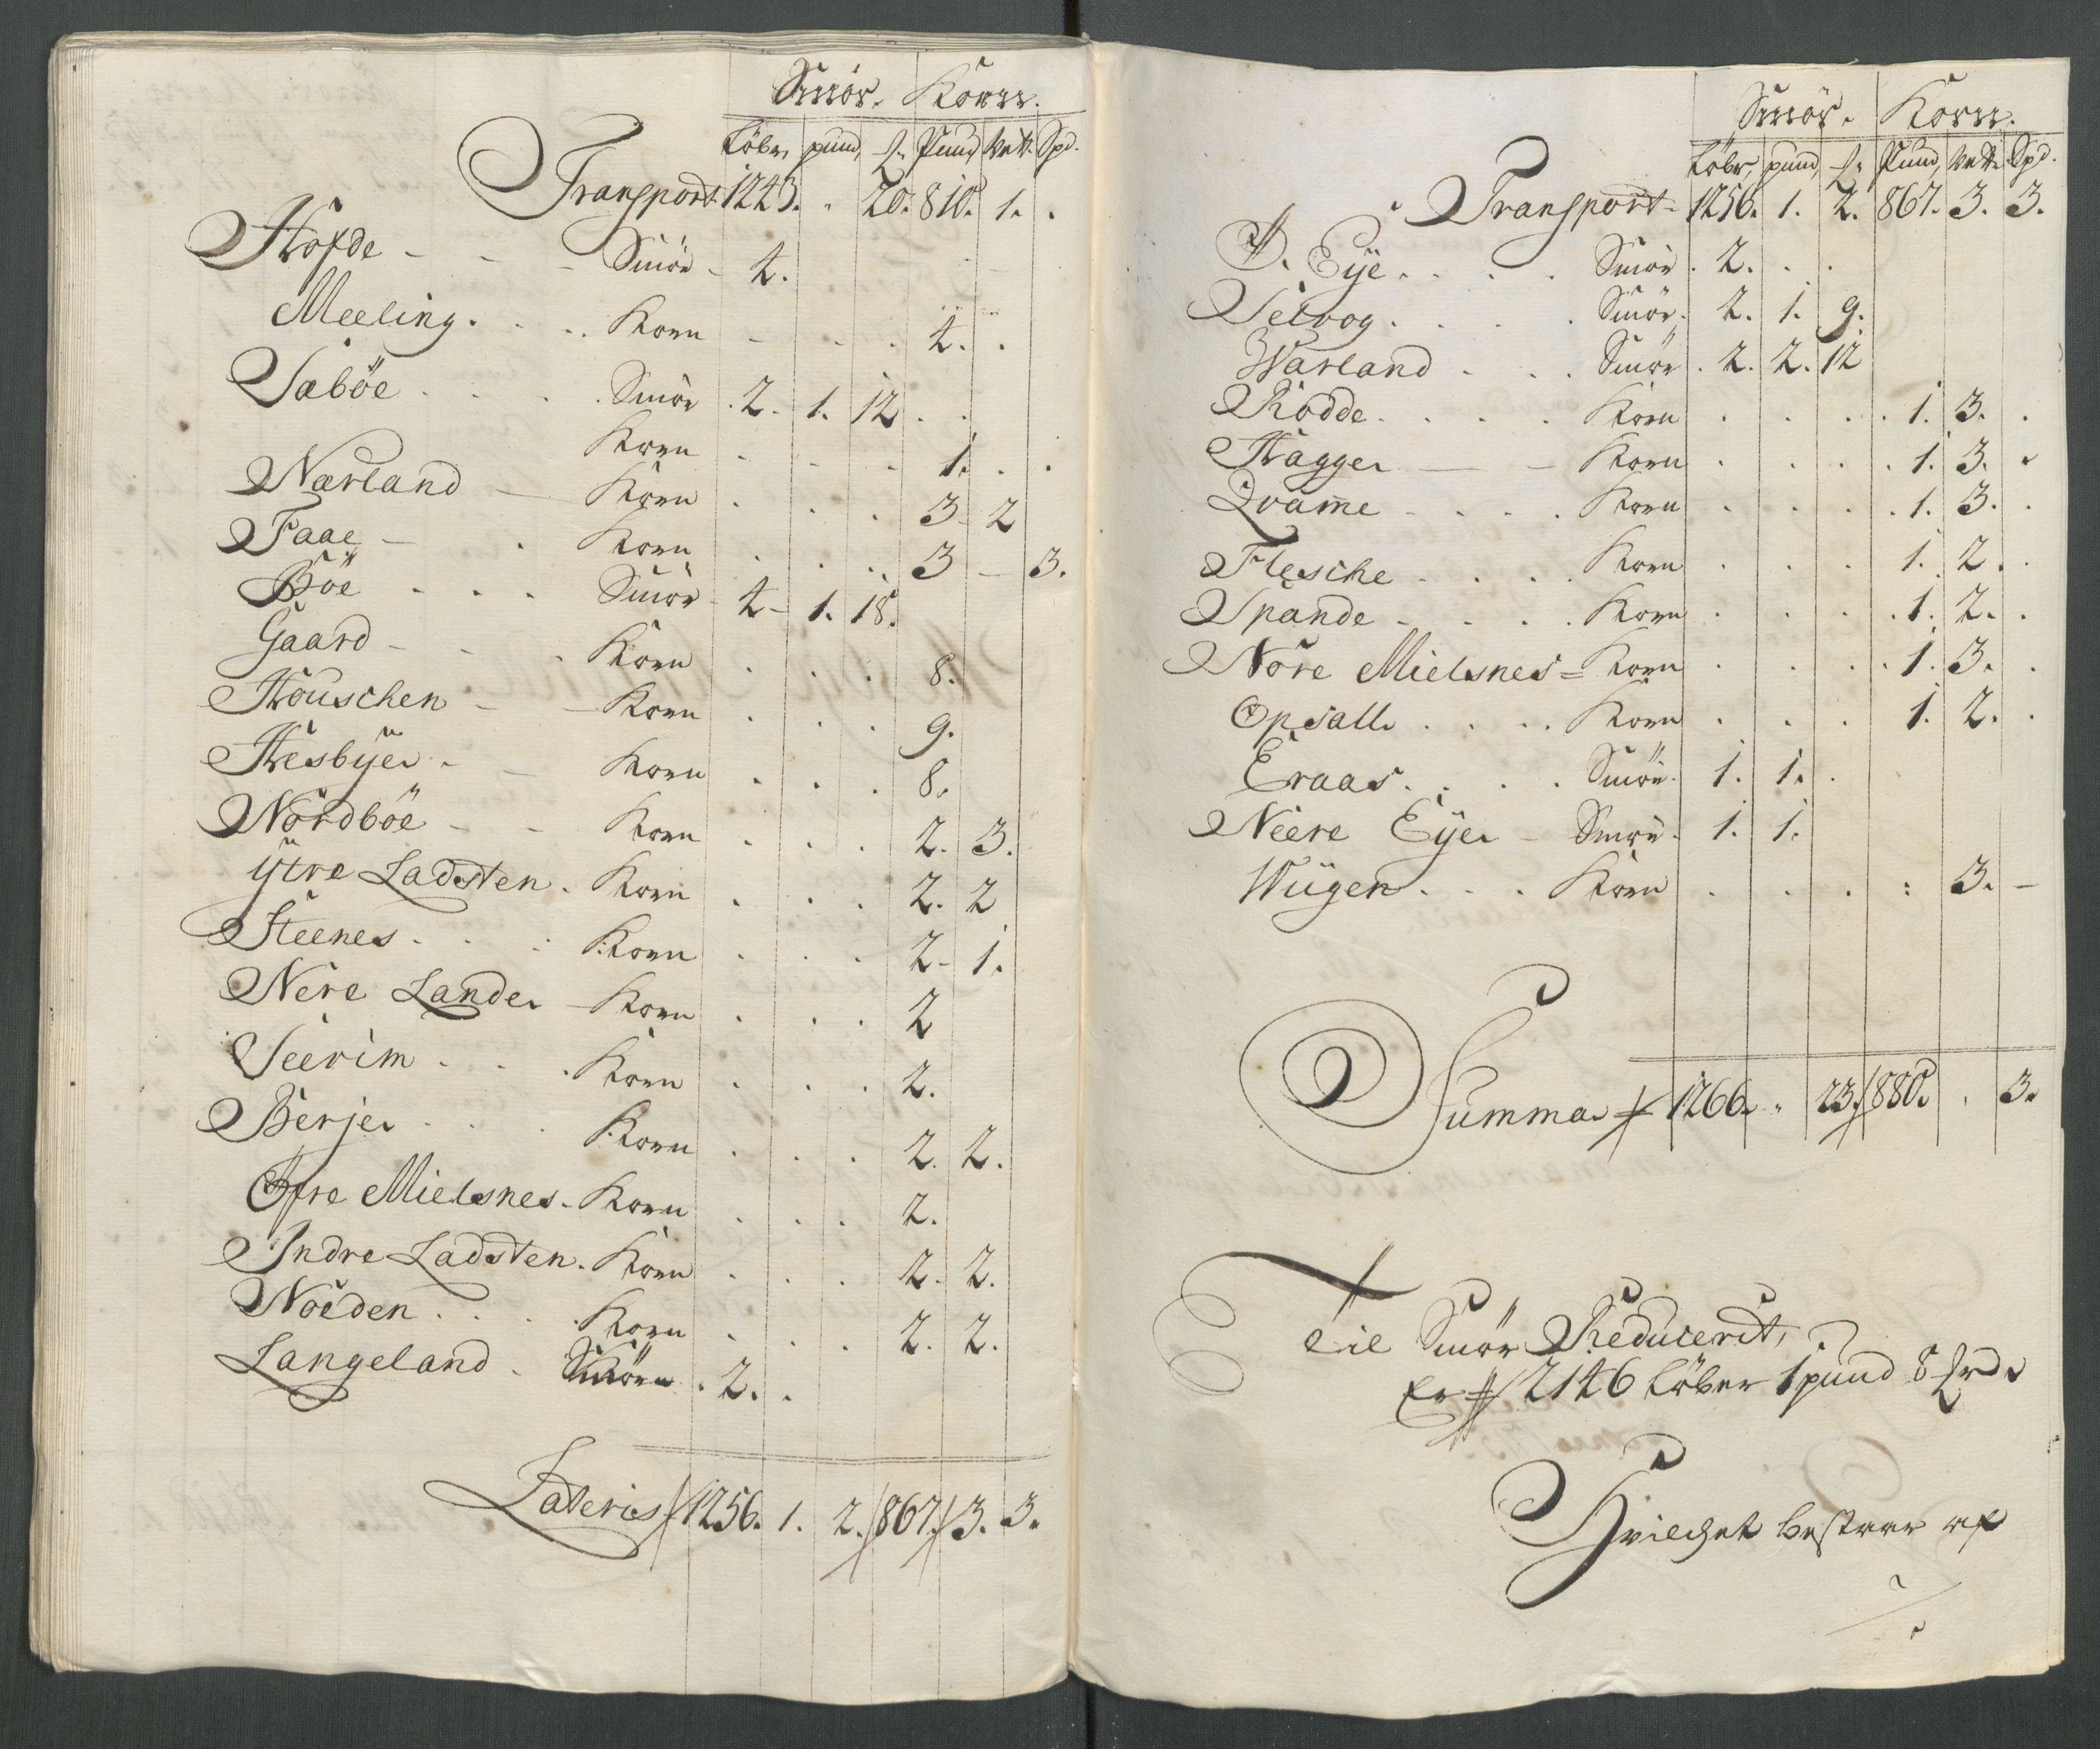 Smör. Korn.
Löber, pund, ℔. Pund, Vett. Spd.
Transport. 1243. " 20. 810. 1. .
Hofde - - - Smör - 4.
Meeling. . . . Korn - - - 4. .
Saböe . . . . Smör . 2. 1. 12 . .
Korn - - - 1. . .
Nærland - Korn . . . 3 - 2
Faae - . Korn . . . 3 - 3.
Böe . . . Smör - 4 - 1. 18.
Gaard - - . Korn . . . 8.
Houschen - - Korn . . . 9.
Hesbÿe. - - Korn . . . 8.
Nordböe - - Korn . . . 2. 3.
ÿtre Ladsten . Korn . . . 2. 2
Steenes . . . Korn . . . 2 - 1.
Nere Lande. - Korn . . . 2
Seerim . . . Korn . . . 2.
Berje. . . . Korn . . . 2. 2.
Öfre Mielsnes . Korn . . . 2.
Indre Ladsten . Korn . . . 2. 2.
Noeden . . . Korn . . . 2. 2.
Langeland . Smör . 2. .
Lateris 1256. 1. 2. 867. 3. 3.
Smör. Korn.
Löber, pund, ℔. Pund, Vett. Spd.
Transport - 1256. 1. 2. 867. 3. 3.
Ö. Eÿe . . . . Smör . 2. . .
Selvog . . . . Smör . 2. 1. 9.
Warland - . . Smör . 2. 2. 12
Rodde. . . . Korn . . . . 1. 3. .
Hagge. - - Korn . . . . 1. 3. .
Qvam̄e - . . . Korn . . . . 1. 3. .
Flesche . . . . Korn . . . 1. 2. .
Spande - . . . Korn . . . . 1. 2. .
Nore Mielsnes = Korn . . . . 1. 3. .
Opsall. . . . Korn . . . 1. 2. .
Eraas . . . . Smör . 1. 1. .
Neere Eÿe. - Smör . 1. 1.
Wügen . . . Korn . . . : 3. -
Summa. 1266. " 23. 880. . 3.
Til Smör Reducerit,
Er 2146 Löber 1 pund 8 ℔rd
Hvilchet bestaar af